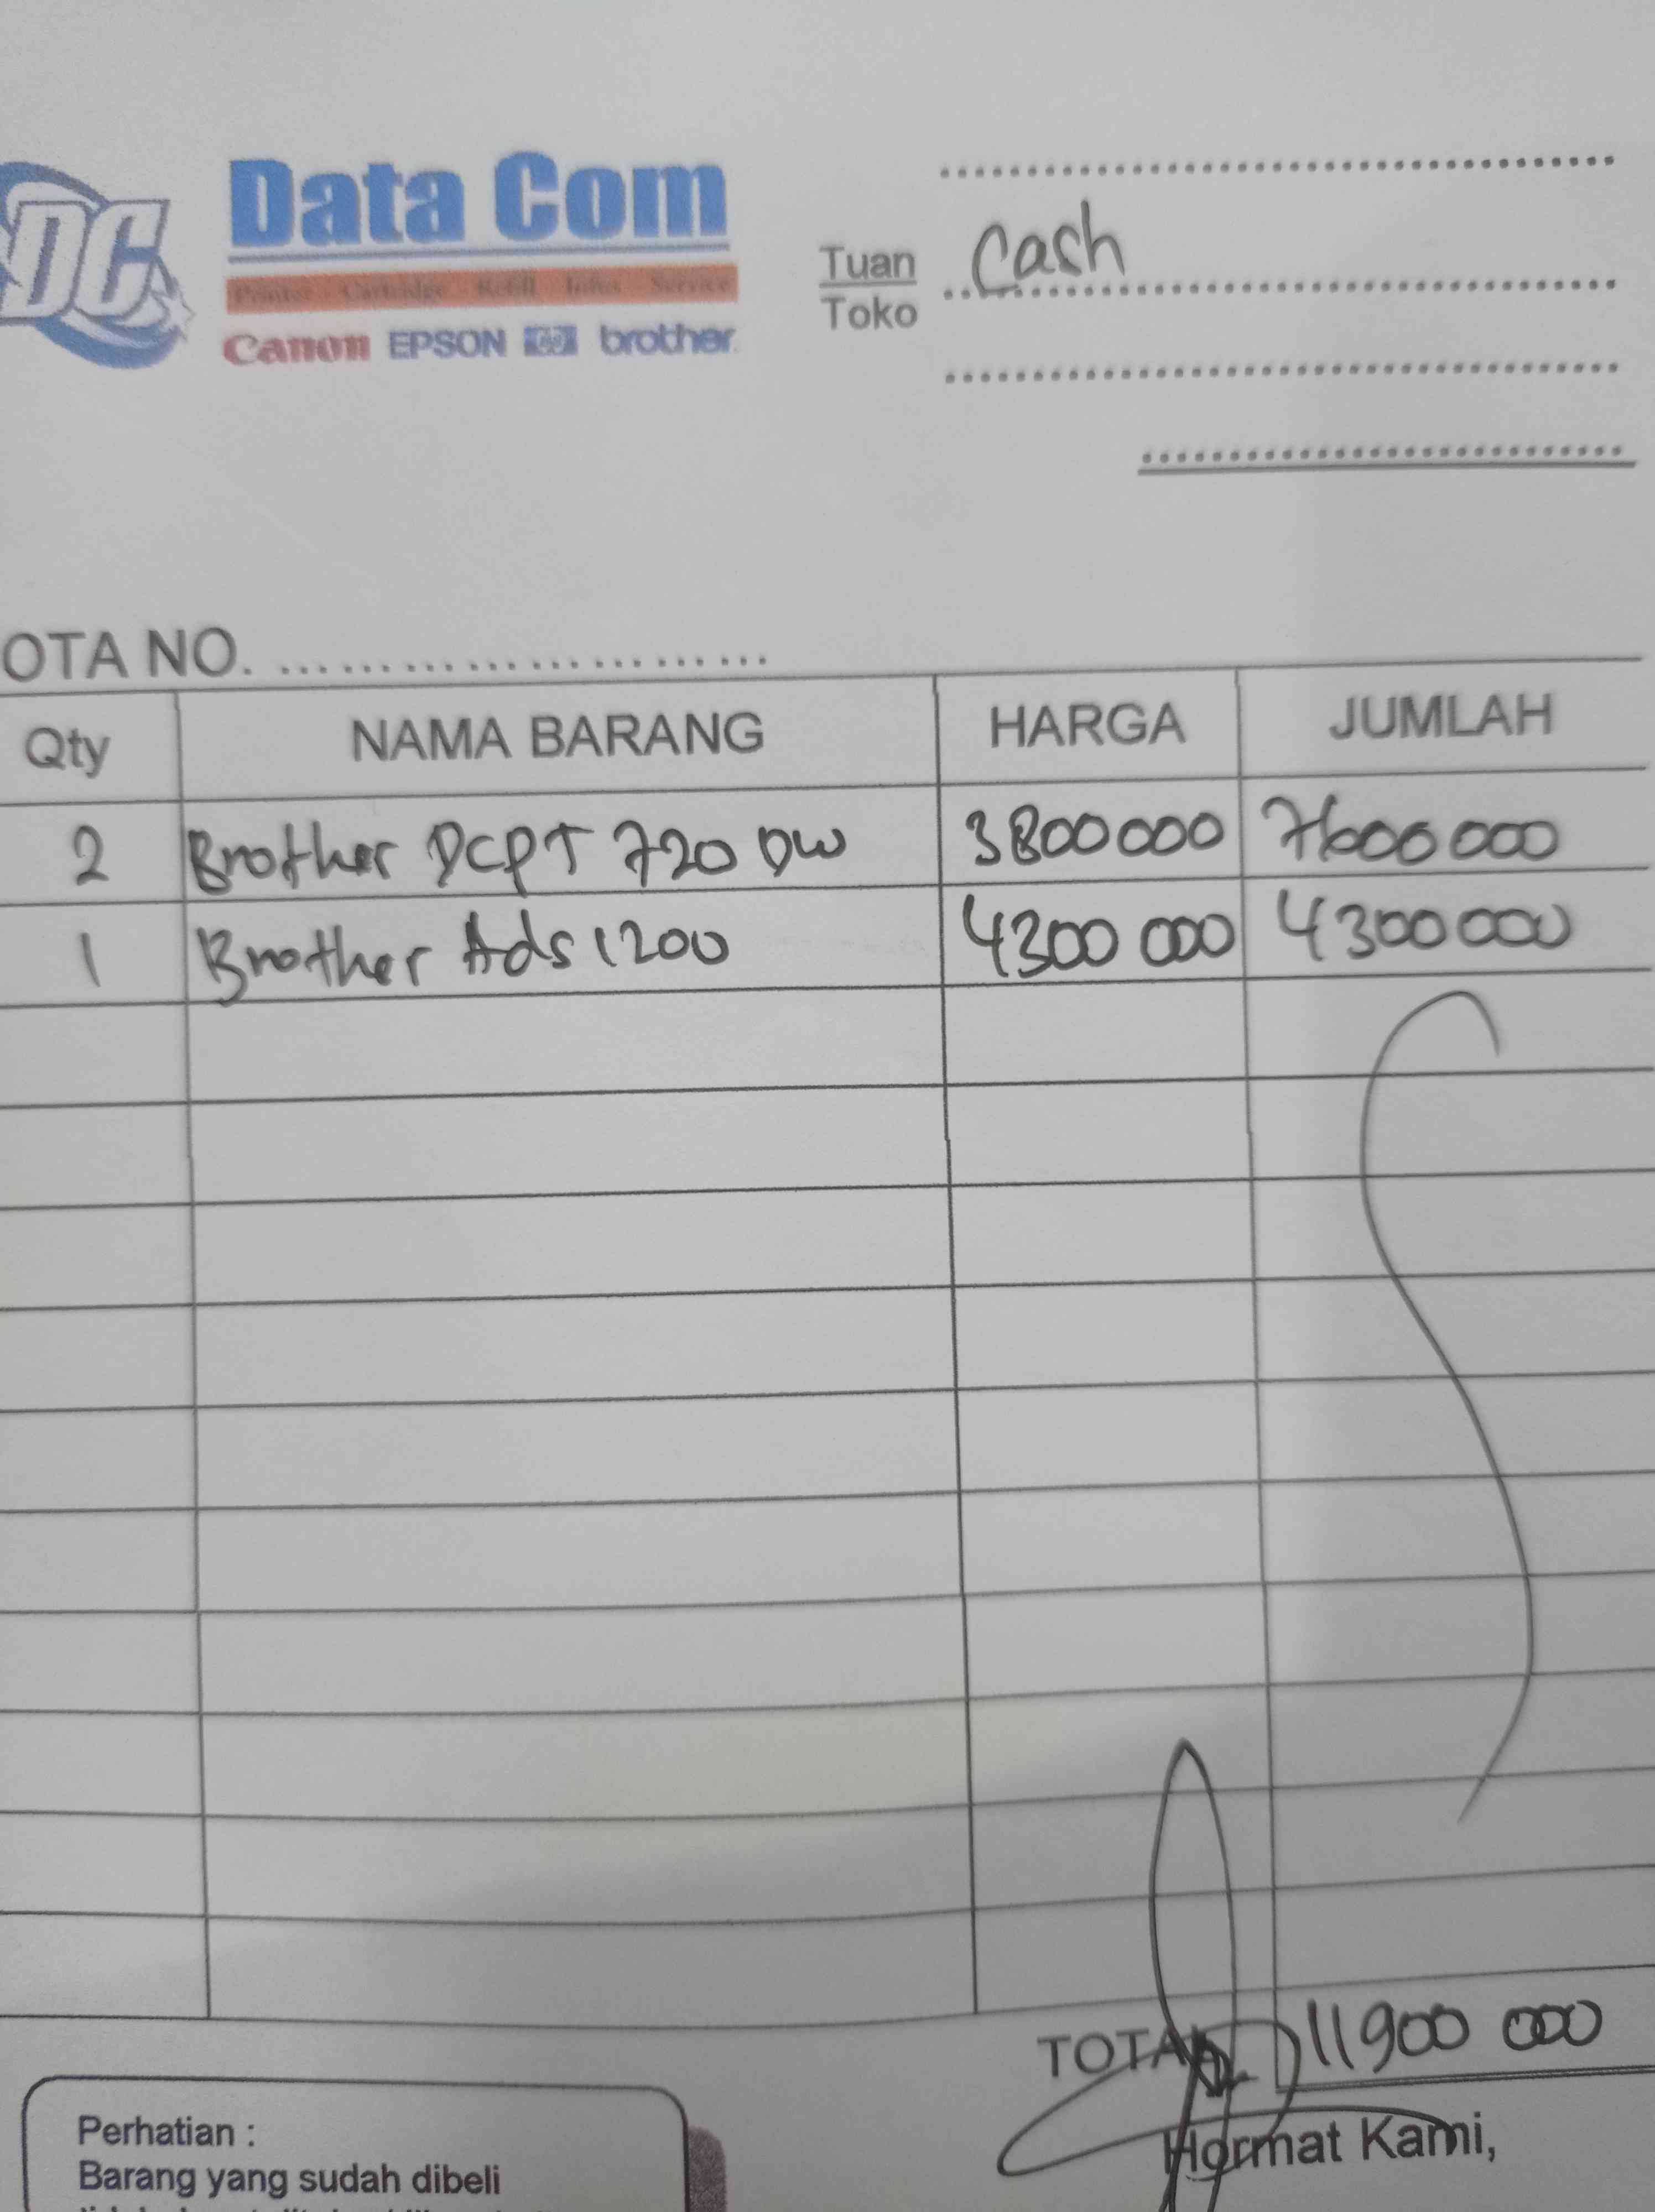 DC
Data Com
Printer Cartridge Refill Infus Service
Canon EPSON hp brother
Tuan Cash
Toko
OTA NO.
Qty NAMA BARANG HARGA JUMLAH
2 Brother DCPT 720 DW 3800000 7600000
1 Brother Ads 1200 4300 000 4300000
TOTAL 11900 000
Hormat Kami,
Perhatian :
Barang yang sudah dibeli